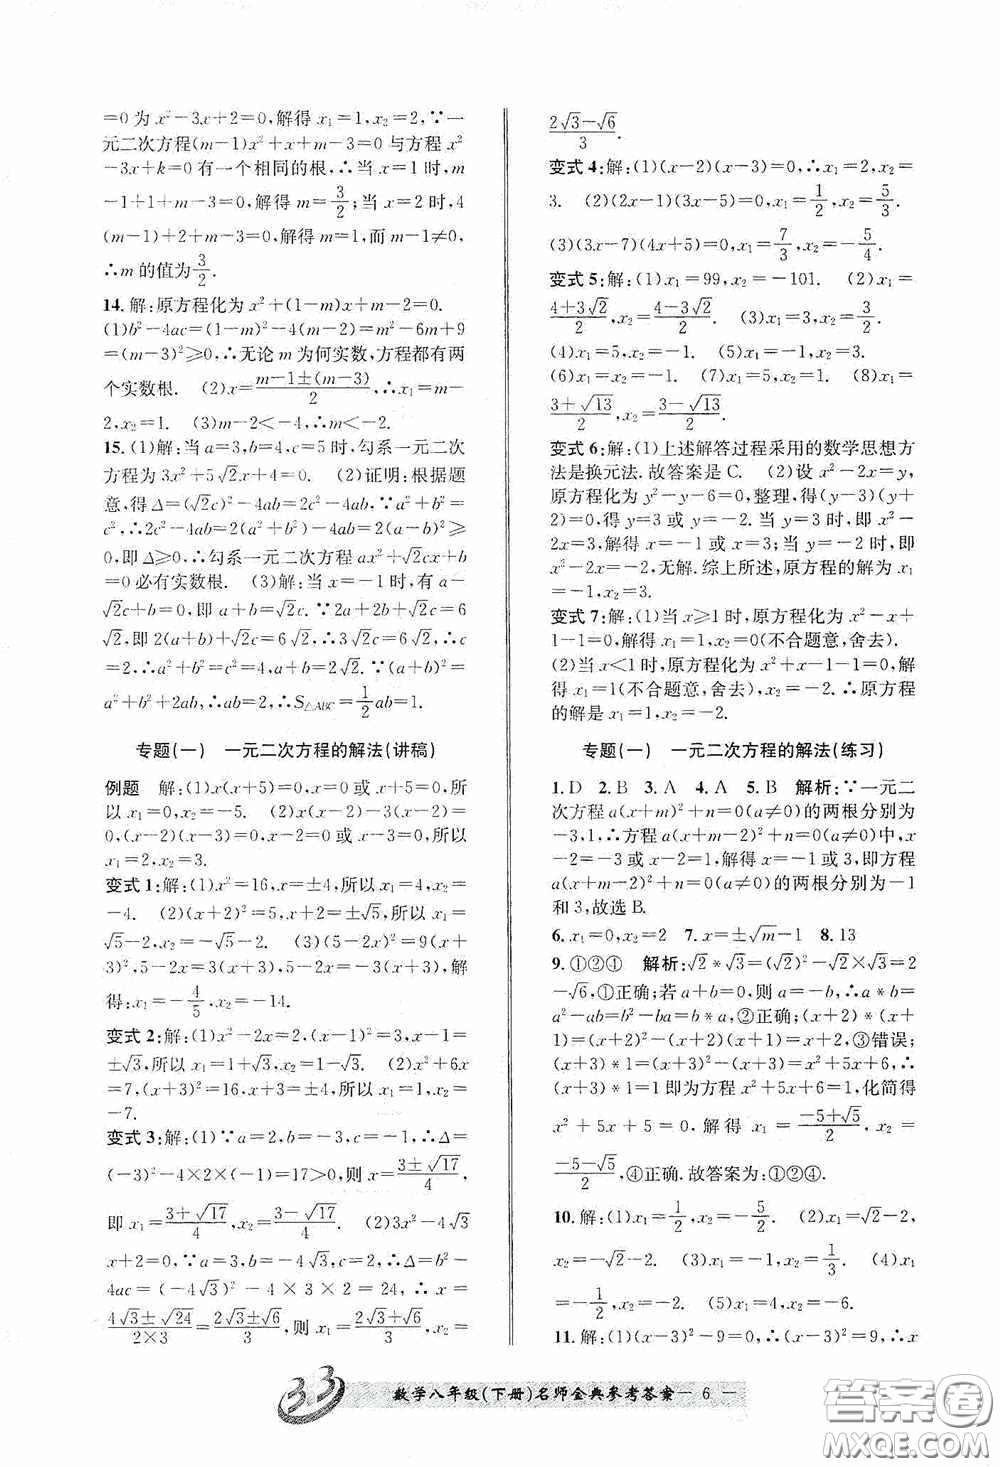 =0为x²-3x+2=0,解得x₁=1,x₂=2,∵一
元二次方程(m-1)x²+x+m-3=0与方程x²
-3x+k=0有一个相同的根,∴当x=1时,m
-1+1+m-3=0,解得m=3/2;当x=2时,4
(m-1)+2+m-3=0,解得m=1,而m-1≠0,
∴m的值为3/2.
14.解:原方程化为x²+(1-m)x+m-2=0.
(1)b²-4ac=(1-m)²-4(m-2)=m²-6m+9
=(m-3)²≥0,∴无论m为何实数,方程都有两
个实数根. (2)x=(m-1±(m-3))/2,∴x₁=m-
2,x₂=1. (3)m-2<-4,∴m<-2.
15.(1)解:当a=3,b=4,c=5时,勾系一元二次
方程为3x²+5√2x+4=0. (2)证明:根据题
意,得Δ=(√2c)²-4ab=2c²-4ab,∵a²+b²=
c²,∴2c²-4ab=2(a²+b²)-4ab=2(a-b)²≥
0,即Δ≥0,∴勾系一元二次方程ax²+√2cx+b
=0必有实数根. (3)解:当x=-1时,有a-
√2c+b=0,即a+b=√2c.∵2a+2b+√2c=6
√2,即2(a+b)+√2c=6√2,∴3√2c=6√2,∴c
=2,∴a²+b²=c²=4,a+b=2√2.∵(a+b)²=
a²+b²+2ab,∴ab=2,∴S△ABC=1/2ab=1.
专题(一) 一元二次方程的解法(讲稿)
例题 解:(1)x(x+5)=0,x=0或x+5=0,所
以x₁=0,x₂=-5. (2)x(x-2)-3(x-2)=
0,(x-2)(x-3)=0,x-2=0或x-3=0,所以
x₁=2,x₂=3.
变式1:解:(1)x²=16,x=±4,所以x₁=4,x₂=
-4. (2)(x+2)²=5,x+2=±√5,所以x₁=
√5-2,x₂=-√5-2. (3)(5-2x)²=9(x+
3)²,5-2x=3(x+3)或5-2x=-3(x+3),解
得:x₁=-4/5,x₂=-14.
变式2:解:(1)x²-2x=2,(x-1)²=3,x-1=
±√3,所以x₁=1+√3,x₂=1-√3. (2)x²+6x
=7,(x+3)²=16,x+3=±4,所以x₁=1,x₂=
-7.
变式3:解:(1)∵a=2,b=-3,c=-1,∴Δ=
(-3)²-4×2×(-1)=17>0,则x=(3±√17)/4,
即x₁=(3+√17)/4,x₂=(3-√17)/4. (2)3x²-4√3
x+2=0,∵a=3,b=-4√3,c=2,∴Δ=b²-
4ac=(-4√3)²-4×3×2=24,∴x=
(4√3±√24)/(2×3)=(2√3±√6)/3,则x₁=(2√3+√6)/3,x₂=
(2√3-√6)/3.
变式4:解:(1)(x-2)(x-3)=0,∴x₁=2,x₂=
3. (2)(2x-1)(3x-5)=0,x₁=1/2,x₂=5/3.
(3)(3x-7)(4x+5)=0,x₁=7/3,x₂=-5/4.
变式5:解:(1)x₁=99,x₂=-101. (2)x₁=
(4+3√2)/2,x₂=(4-3√2)/2. (3)x₁=2,x₂=1.
(4)x₁=5,x₂=-1. (5)x₁=1,x₂=3.
(6)x₁=5,x₂=-1. (7)x₁=5,x₂=1. (8)x₁=
(3+√13)/2,x₂=(3-√13)/2.
变式6:解:(1)上述解答过程采用的数学思想方
法是换元法.故答案是C. (2)设x²-2x=y,
原方程化为y²-y-6=0,整理,得(y-3)(y+
2)=0,得y=3或y=-2.当y=3时,即x²-
2x=3,解得x=3或x=-1;当y=-2时,即
x²-2x=-2,无解.综上所述,原方程的解为x₁
=3,x₂=-1.
变式7:解:(1)当x≥1时,原方程化为x²-x+
1-1=0,解得x₁=1,x₂=0(不合题意,舍去).
(2)当x<1时,原方程化为x²+x-1-1=0,解
得x₁=1(不合题意,舍去),x₂=-2.∴原方程
的解是x₁=1,x₂=-2.
专题(一) 一元二次方程的解法(练习)
1.D 2.B 3.A 4.A 5.B 解析:∵一元二
次方程a(x+m)²+n=0(a≠0)的两根分别为
-3,1,∴方程a(x+m-2)²+n=0(a≠0)中,x
-2=-3或x-2=1,解得x=-1或3,即方程
a(x+m-2)²+n=0(a≠0)的两根分别为-1
和3,故选B.
6.x₁=0,x₂=2 7.x=±√m-1 8.13
9.①②④ 解析:√2*√3=(√2)²-√2×√3=2
-√6,①正确;若a+b=0,则a=-b,∴a*b=
a²-ab=b²-ba=b*a,②正确;(x+2)*(x+
1)=(x+2)²-(x+2)(x+1)=x+2,③错误;
∴(x+3)*1=(x+3)²-(x+3)=x²+5x+6,
∴(x+3)*1=1即为方程x²+5x+6=1,化简得
x²+5x+5=0,解得x₁=(-5+√5)/2,x₂=
(-5-√5)/2,④正确.故答案为:①②④.
10.解:(1)x₁=1/2,x₂=-5/2. (2)x₁=√2-2,
x₂=-√2-2. (3)x₁=-1,x₂=1/3. (4)x₁
=-1/2,x₂=2. (5)x₁=4,x₂=-6.
11.解:(1)(x-3)²-9=0,∴(x-3)²=9,∴x
33 数学八年级(下册)名师金典参考答案—6—
答案圈
MXQE.COM